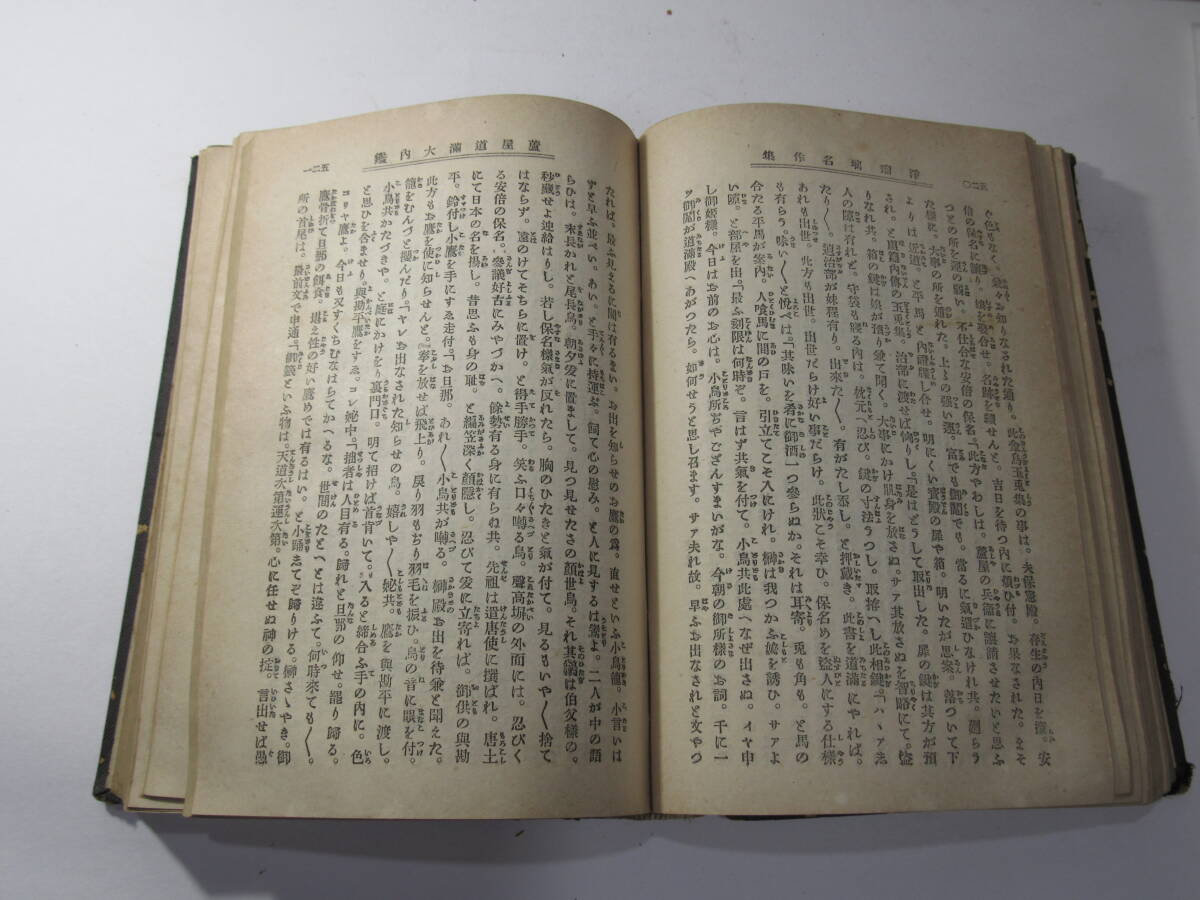 淨瑠璃名作集
五二〇
ぐ色もなく。鉄々お知りなされた通り。此金烏玉兎集の事は。夫保憲殿。存生の內日を濳。安
倍の保名に讓り。娘を娶合せ。名跡を續せんと。吉日を待つ內に頓ひ付。お果なされた。まそ
つとの所を運の弱い。不仕合な安倍の保名。「此方やわしは。蘆屋の兵衞に讓請させたいと思ふ
た樣に。大事の所を通れた。上々の强い運。富でも御䦰でも。當るに氣遣ひなけれ共。廻らう
よりは近道。と平馬と內證腹し合せ。明にくい寳殿の扉や箱。明いたが思案。落ついて下
され。と䦰籍內傳の玉兎集。治部に渡せば恟りし。「是はどうして取出した。扉の鍵は其方が預
なりなれ共。箱の鍵は娘が預り錠て開く。大事にかけ肌身を放さぬ。サア其放さぬを智略にて。盜
人の隙は有れど。守袋も寢る內は。枕元へ忍び。鍵の寸法うつし。取拵へし此相鍵。「ハヽア忝
たり〳〵。追治部が妹程有り。出來た〳〵。有がたし忝し。と押戴き。此書を道滿にやれば。
あれも出世。此方も出世。出世だらけ好い事だらけ。此狀こそ幸ひ。保名めを盜人にする仕樣
も有らう。味い〳〵と悅べば。「其味いを肴に御酒一つ參らぬか。それは耳寄。兎も角も。と馬の
合たる平馬が案內。人喰馬に間の日を。引立てこそ入にけれ。榊は我つかふ婢を誘ひ。サアよ
い隙。と部屋を出。「最ふ刻限は何時ぞ。言はず共氣を付て。小鳥共此處へなぜ出さぬ。イヤ申
し御姬樣。今日はお前のお心は。小鳥所ぢやござんすまいがな。今朝の御所樣のお詞。千に一
つ御䦰が道滿殿へあがつたら。如何せうと思し召ます。サア夫れ故。早ふお出なされと文やつ
蘆屋道滿大內鑑
五二一
たれば。最ふ見さるに間は有るまい。お出を知らせのお鷹の爲。直せといふ小鳥籠。小言いは
ずと早ふ並べい。あい。と手々に持運ぶ。飼て心の慰み。と人に見するは鷽よ。二人が中の語
らひは。末長かれと尾長鳥。朝夕爰に置まして。見つ見せたさの顏世鳥。それ其鷭は伯父樣の。
秘藏せよ連給はりし。若し保名樣氣が反れたら。胸のひたき氣が付て。見るもいや〳〵捨て
はならず。遠のけてそちらに置け。と得手勝手。笑ふ口々囀る鳥。塵高塀の外面には。忍びく
る安倍の保名。參議好古にみやづかへ。餘勢有る身に有らぬ共。先祖は遣唐使に撰ばれ。唐土
にて日本の名を揚し。昔思ふも身の恥。と編笠深く顏隱し。忍びて爰に立寄れば。御供の與勘
平。鈴付し小鷹を手にすゑ走付。「お旦那。あれ〳〵小鳥共が囀る。榊殿お出を待兼と聞えた。
此方もお鷹を使に知らせんと。拳を放せば飛上り。戾り羽ぢり羽毛を振ひ。鳥の音に眼を付。
籠をむんづと摑んだり。「ヤレお出なされた知らせの鳥。嬉しや〳〵妼共。鷹を與勘平に渡し。
小鳥共かたづきや。と庭にかけをり裏門口。明て招けば首肯いて。入ると締合ふ手の內に。色
と思ひを含ませり。與勘平鷹をすゑ。コレ妼中。「拙者は人目有る。歸れと旦那の仰せ。罷り歸る。
コリヤ鷹よ。今日も又すくちむなはらでかへるな。世間のたとへとは違ふて。何時來ても〳〵。
鷹骨折て旦那の餌食。堪え性の好い鷹めでは有るはい。と小踊志てぞ歸りける。榊さゝやき。御
所の首尾は。最前文で申通。御籤といふ物は。天道次第運次第。心に任せぬ神の掟。言出せば愚